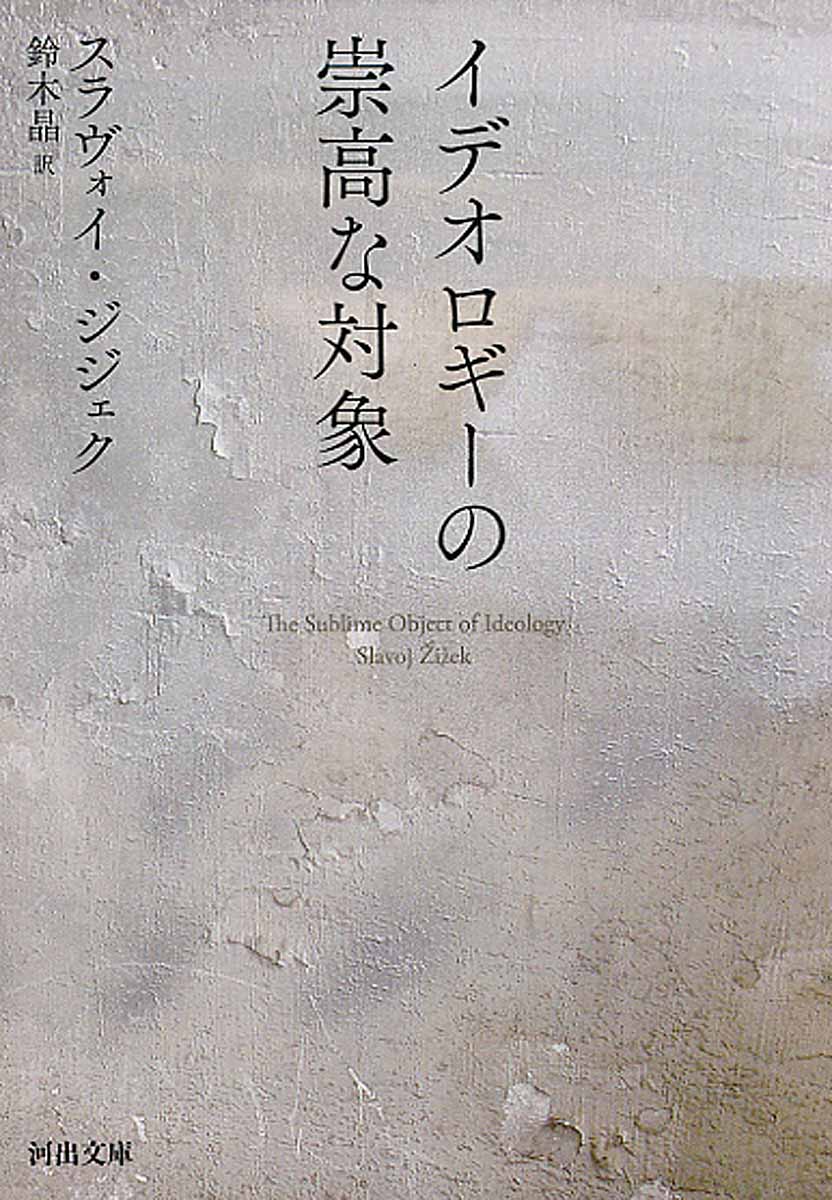 イデオロギーの
崇高な対象
スラヴォイ・ジジェク
鈴木晶 訳
The Sublime Object of Ideology
Slavoj Žižek
河出文庫